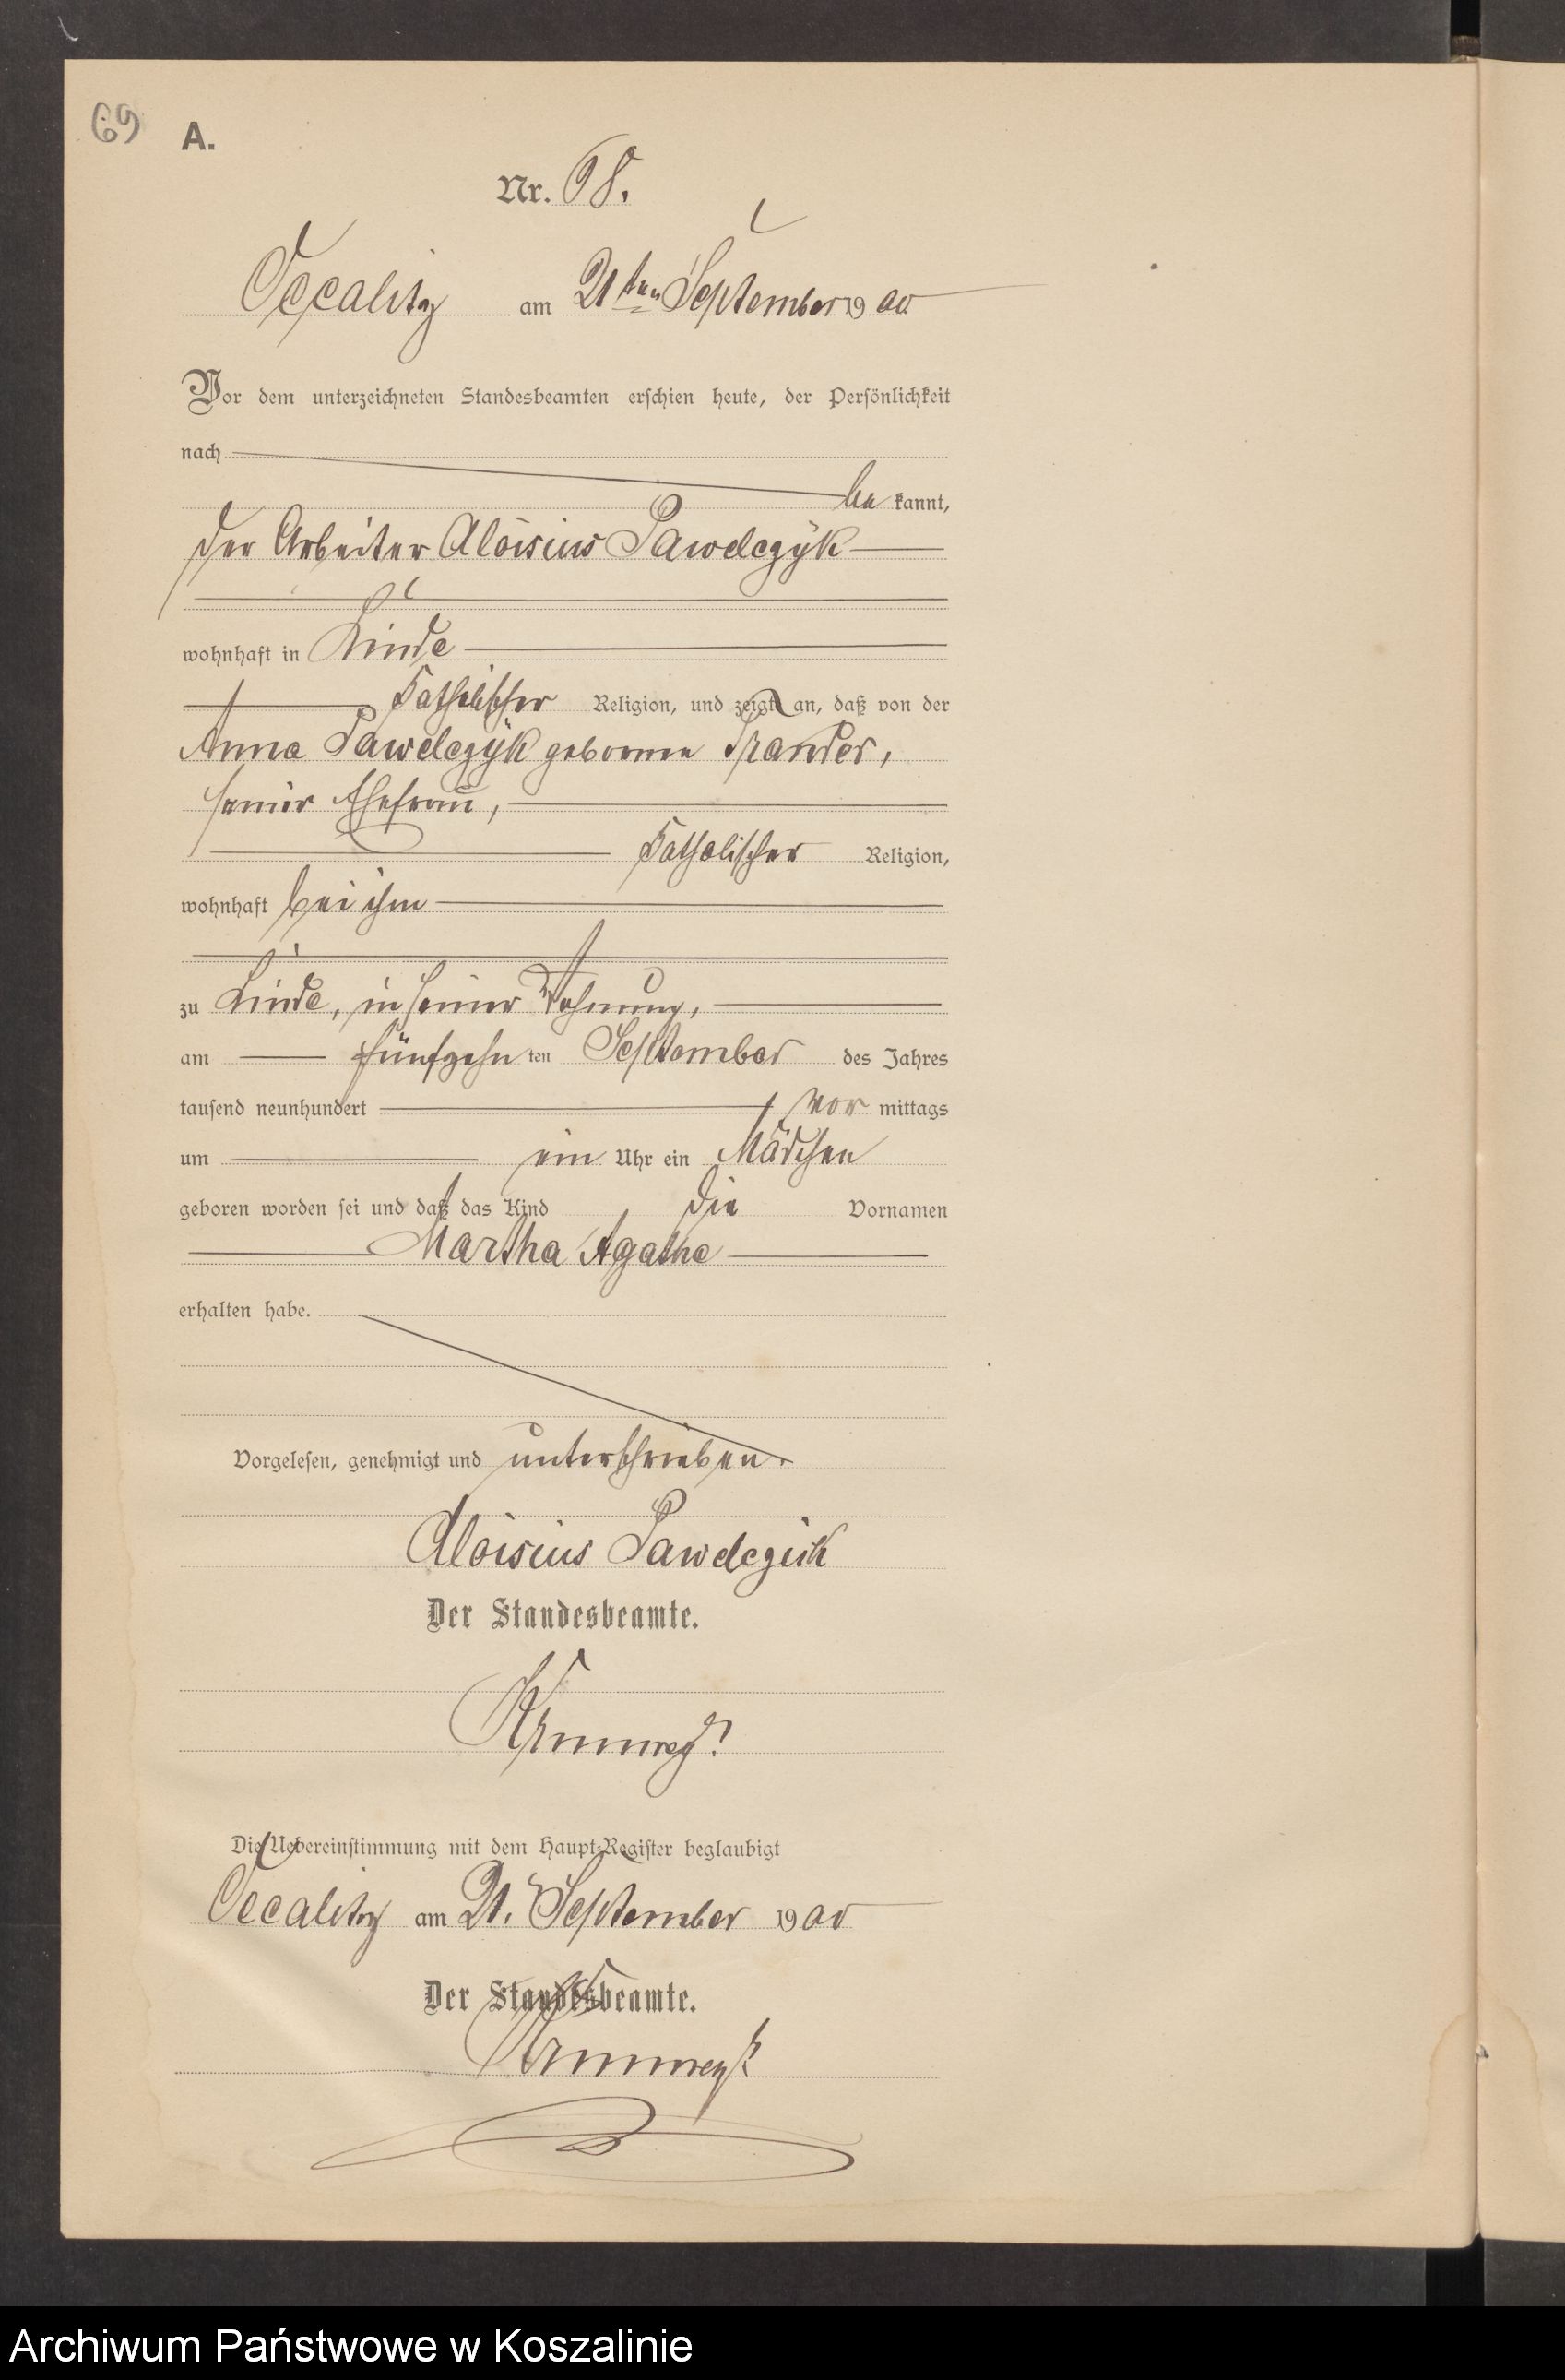 69 A.
Nr. 68.
Occalitz am 21ten September 1900
Vor dem unterzeichneten Standesbeamten erschien heute, der Persönlichkeit
nach
be kannt,
der Arbeiter Aloisius Pawelczÿk
wohnhaft in Linde
katholischer Religion, und zeigt an, daß von der
Anna Pawelczÿk geborenen
seiner Ehefrau,
katholischer Religion,
wohnhaft bei ihm
zu Linde, in seiner Wohnung,
am fünfzehn ten September des Jahres
tausend neunhundert vor mittags
um ein Uhr ein Mädchen
geboren worden sei und daß das Kind die Vornamen
Martha Agathe
erhalten habe.
Vorgelesen, genehmigt und unterschrieben.
Aloisius Pawelczik
Der Standesbeamte.
Die Uebereinstimmung mit dem Haupt-Register beglaubigt
Occalitz am 21. September 1900
Der Standesbeamte.
Archiwum Państwowe w Koszalinie